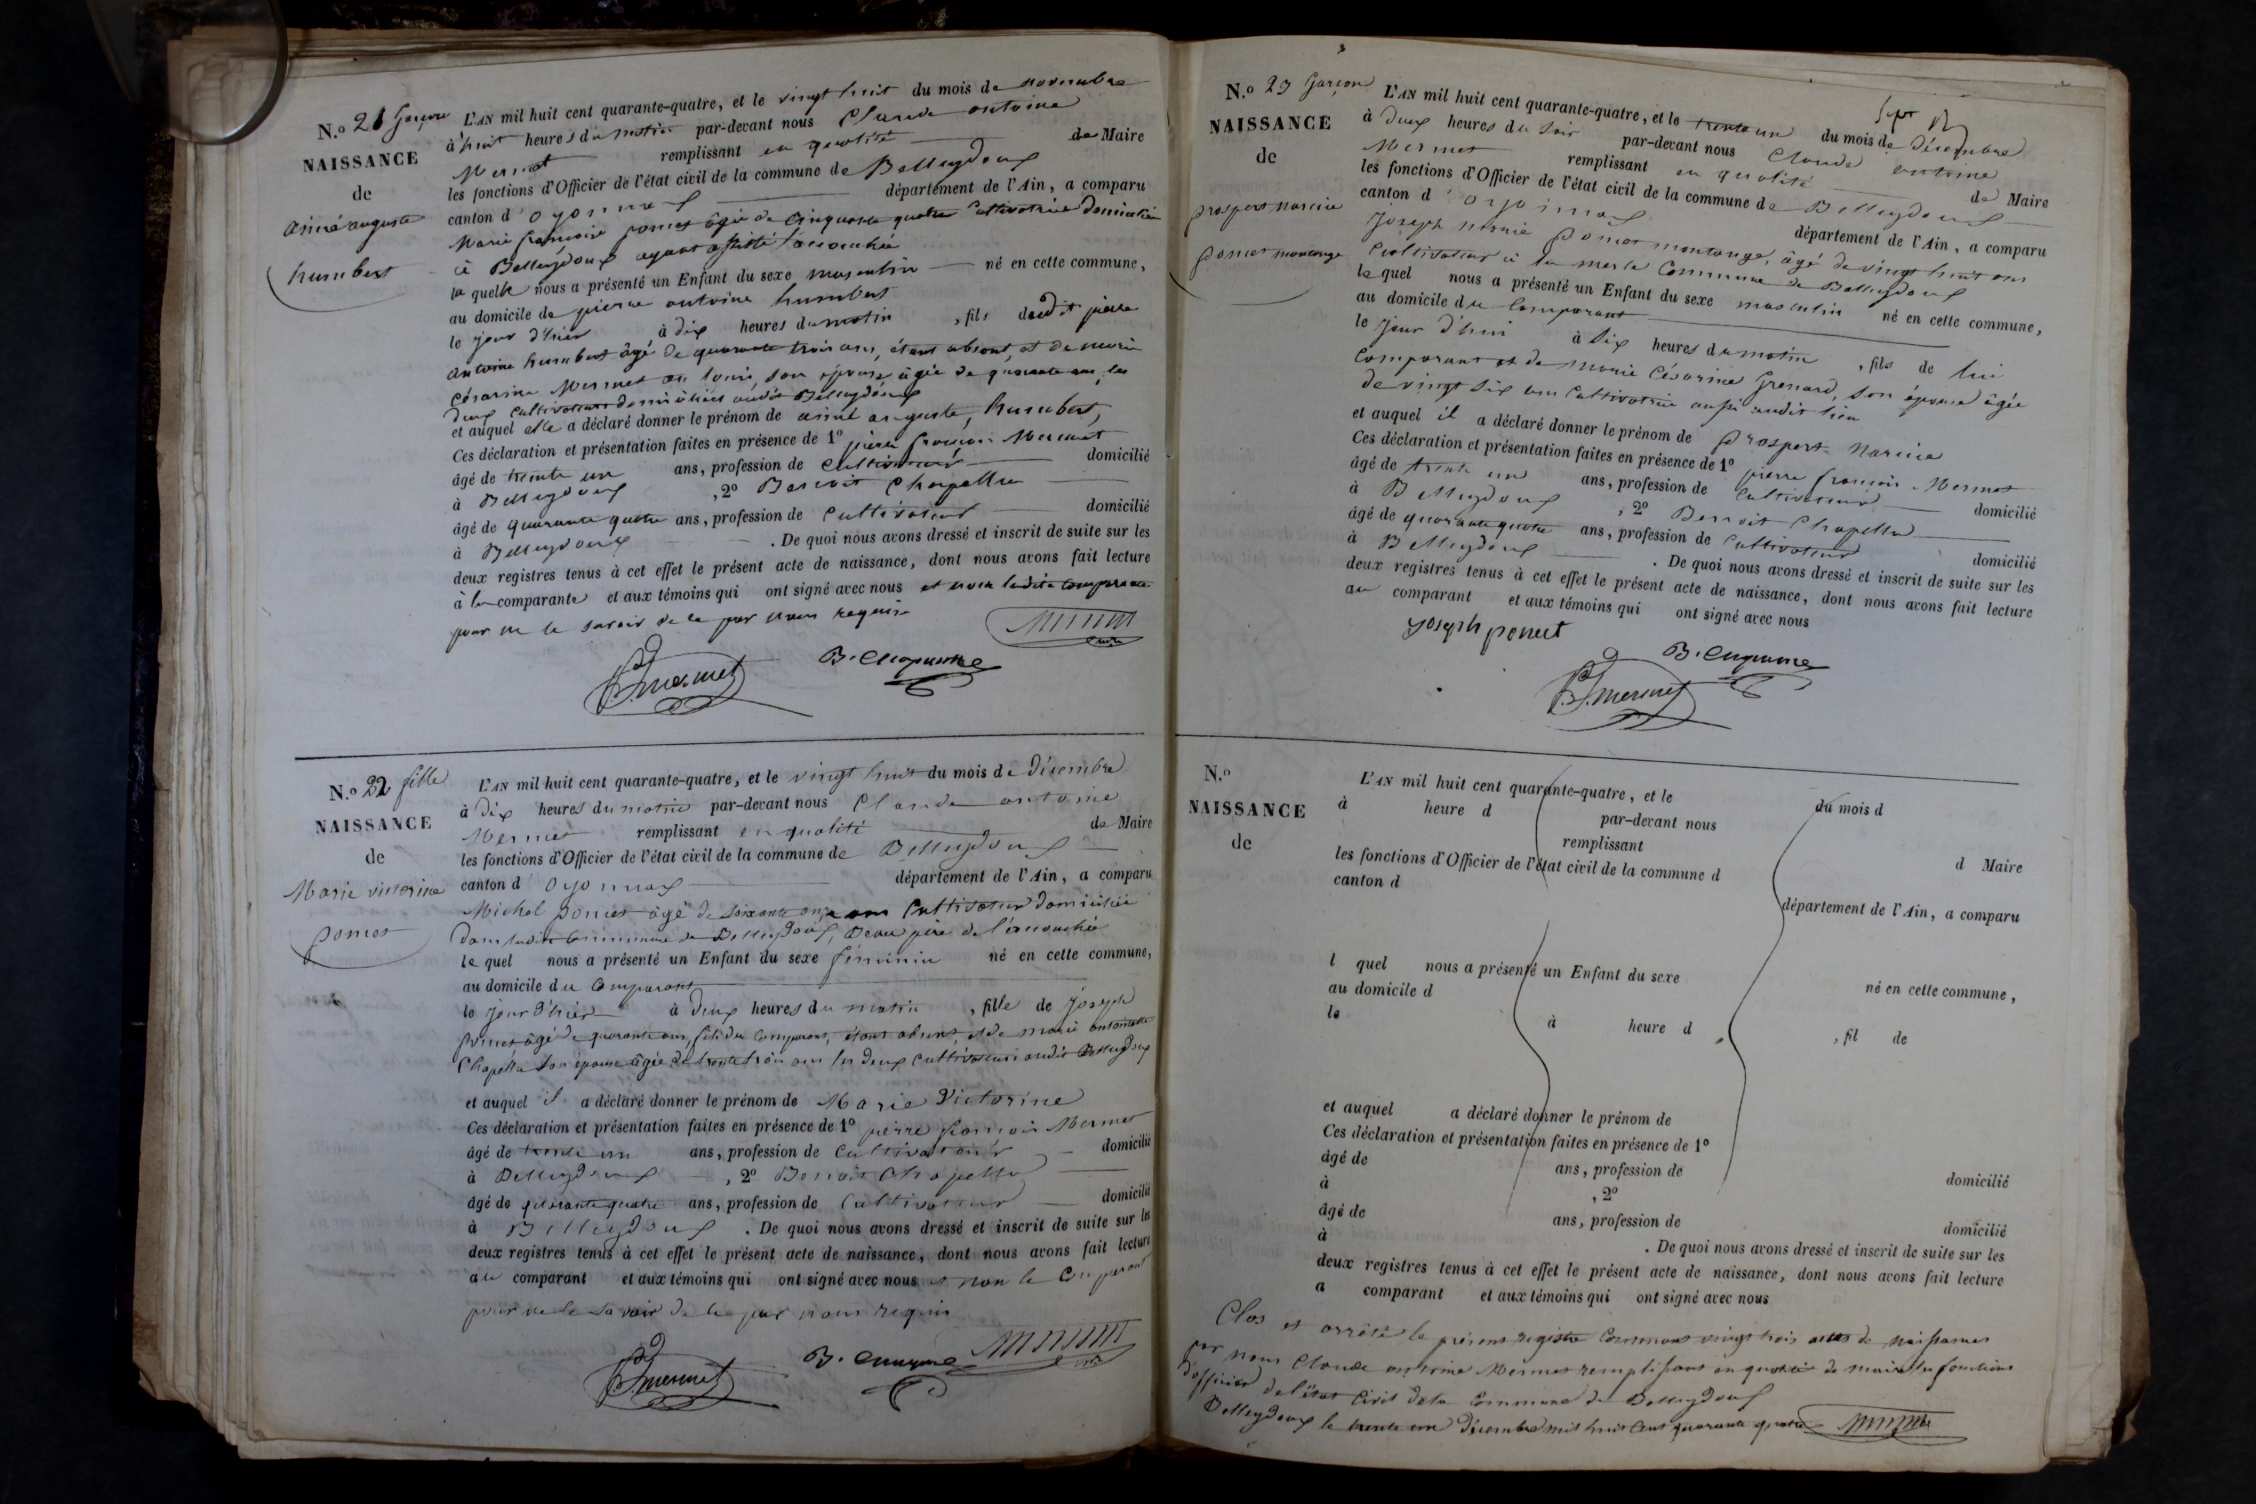 N.º 21 garçon
NAISSANCE
de
aimé auguste
humbert
L'AN mil huit cent quarante-quatre, et le vingt huit du mois de novembre
à huit heures du matin par-devant nous Claude antoine
Mermet remplissant en qualité de Maire
les fonctions d'Officier de l'état civil de la commune de Belleydoux
canton d'oyonnax département de l'Ain, a comparu
Marie françoise poncet âgée de cinquante quatre cultivatrice domiciliée
à Belleydoux ayant assisté l'accouchée
laquelle nous a présenté un Enfant du sexe masculin né en cette commune,
au domicile de pierre antoine humbert
le jour d'hier à dix heures du matin, fils dudit pierre
antoine humbert âgé de quarante trois ans, étant absent, et de marie
césarine Mermet son épouse âgée de quarante ans, les
deux cultivateurs domiciliés audit Belleydoux
et auquel elle a déclaré donner le prénom de aimé auguste, humbert,
Ces déclaration et présentation faites en présence de 1º pierre françois Mermet
âgé de trente un ans, profession de cultivateur domicilié
à Belleydoux, 2º Benoit Chapellu
âgé de quarante quatre ans, profession de cultivateur domicilié
à Belleydoux. De quoi nous avons dressé et inscrit de suite sur les
deux registres tenus à cet effet le présent acte de naissance, dont nous avons fait lecture
à la comparante et aux témoins qui ont signé avec nous et non ladite comparante
pour ne le savoir de ce par nous requise
B. Chapellu
P. f. mermet
N.º 22 fille
NAISSANCE
de
Marie victorine
poncet
L'AN mil huit cent quarante-quatre, et le vingt huit du mois de décembre
à dix heures du matin par-devant nous Claude antoine
Mermet remplissant en qualité de Maire
les fonctions d'Officier de l'état civil de la commune de Belleydoux
canton d'oyonnax département de l'Ain, a comparu
Michel poncet âgé de soixante onze ans cultivateur domicilié
dans ladite commune de Belleydoux, beau père de l'accouchée
lequel nous a présenté un Enfant du sexe féminin né en cette commune,
au domicile du comparant
le jour d'hier à deux heures du matin, fille de joseph
poncet âgé de quarante ans, fils du comparant, étant absent, et de marie antoinette
Chapellu son épouse âgée de trente trois ans les deux cultivateurs audit Belleydoux
et auquel il a déclaré donner le prénom de Marie Victorine
Ces déclaration et présentation faites en présence de 1º pierre françois Mermet
âgé de trente un ans, profession de cultivateur domicilié
à Belleydoux, 2º Benoit Chapellu
âgé de quarante quatre ans, profession de cultivateur domicilié
à Belleydoux. De quoi nous avons dressé et inscrit de suite sur les
deux registres tenus à cet effet le présent acte de naissance, dont nous avons fait lecture
au comparant et aux témoins qui ont signé avec nous et non le comparant
pour ne le savoir de ce par nous requis
B. Chapellu
P. f. mermet
N.º 23 garçon
NAISSANCE
de
prospert narcice
poncet montange
L'AN mil huit cent quarante-quatre, et le trente un du mois de décembre
à deux heures du soir par-devant nous Claude antoine
Mermet remplissant en qualité de Maire
les fonctions d'Officier de l'état civil de la commune de Belleydoux
canton d'oyonnax département de l'Ain, a comparu
joseph marie poncet montange, âgé de vingt huit ans
cultivateur à la merle commune de Belleydoux
lequel nous a présenté un Enfant du sexe masculin né en cette commune,
au domicile du comparant
le jour d'hui à six heures du matin, fils de lui
comparant et de marie césarine grenard, son épouse âgée
de vingt six ans cultivatrice aussi audit lieu
et auquel il a déclaré donner le prénom de prospert narcice
Ces déclaration et présentation faites en présence de 1º pierre françois Mermet
âgé de trente un ans, profession de cultivateur domicilié
à Belleydoux, 2º Benoit Chapellu
âgé de quarante quatre ans, profession de cultivateur domicilié
à Belleydoux. De quoi nous avons dressé et inscrit de suite sur les
deux registres tenus à cet effet le présent acte de naissance, dont nous avons fait lecture
au comparant et aux témoins qui ont signé avec nous
joseph poncet
B. Chapellu
P. f. mermet
N.º
NAISSANCE
de
L'AN mil huit cent quarante-quatre, et le du mois d
à heure d par-devant nous
remplissant d Maire
les fonctions d'Officier de l'état civil de la commune d
canton d département de l'Ain, a comparu
l quel nous a présenté un Enfant du sexe né en cette commune,
au domicile d
le à heure d, fil de
et auquel a déclaré donner le prénom de
Ces déclaration et présentation faites en présence de 1º
âgé de ans, profession de domicilié
à, 2º
âgé de ans, profession de domicilié
à. De quoi nous avons dressé et inscrit de suite sur les
deux registres tenus à cet effet le présent acte de naissance, dont nous avons fait lecture
a comparant et aux témoins qui ont signé avec nous
Clos et arrêté le présent registre contenant vingt trois actes de naissances
par nous Claude antoine Mermet remplissant en qualité de maire les fonctions
d'officier de l'état civil de la commune de Belleydoux
Belleydoux le trente un décembre mil huit cent quarante quatre